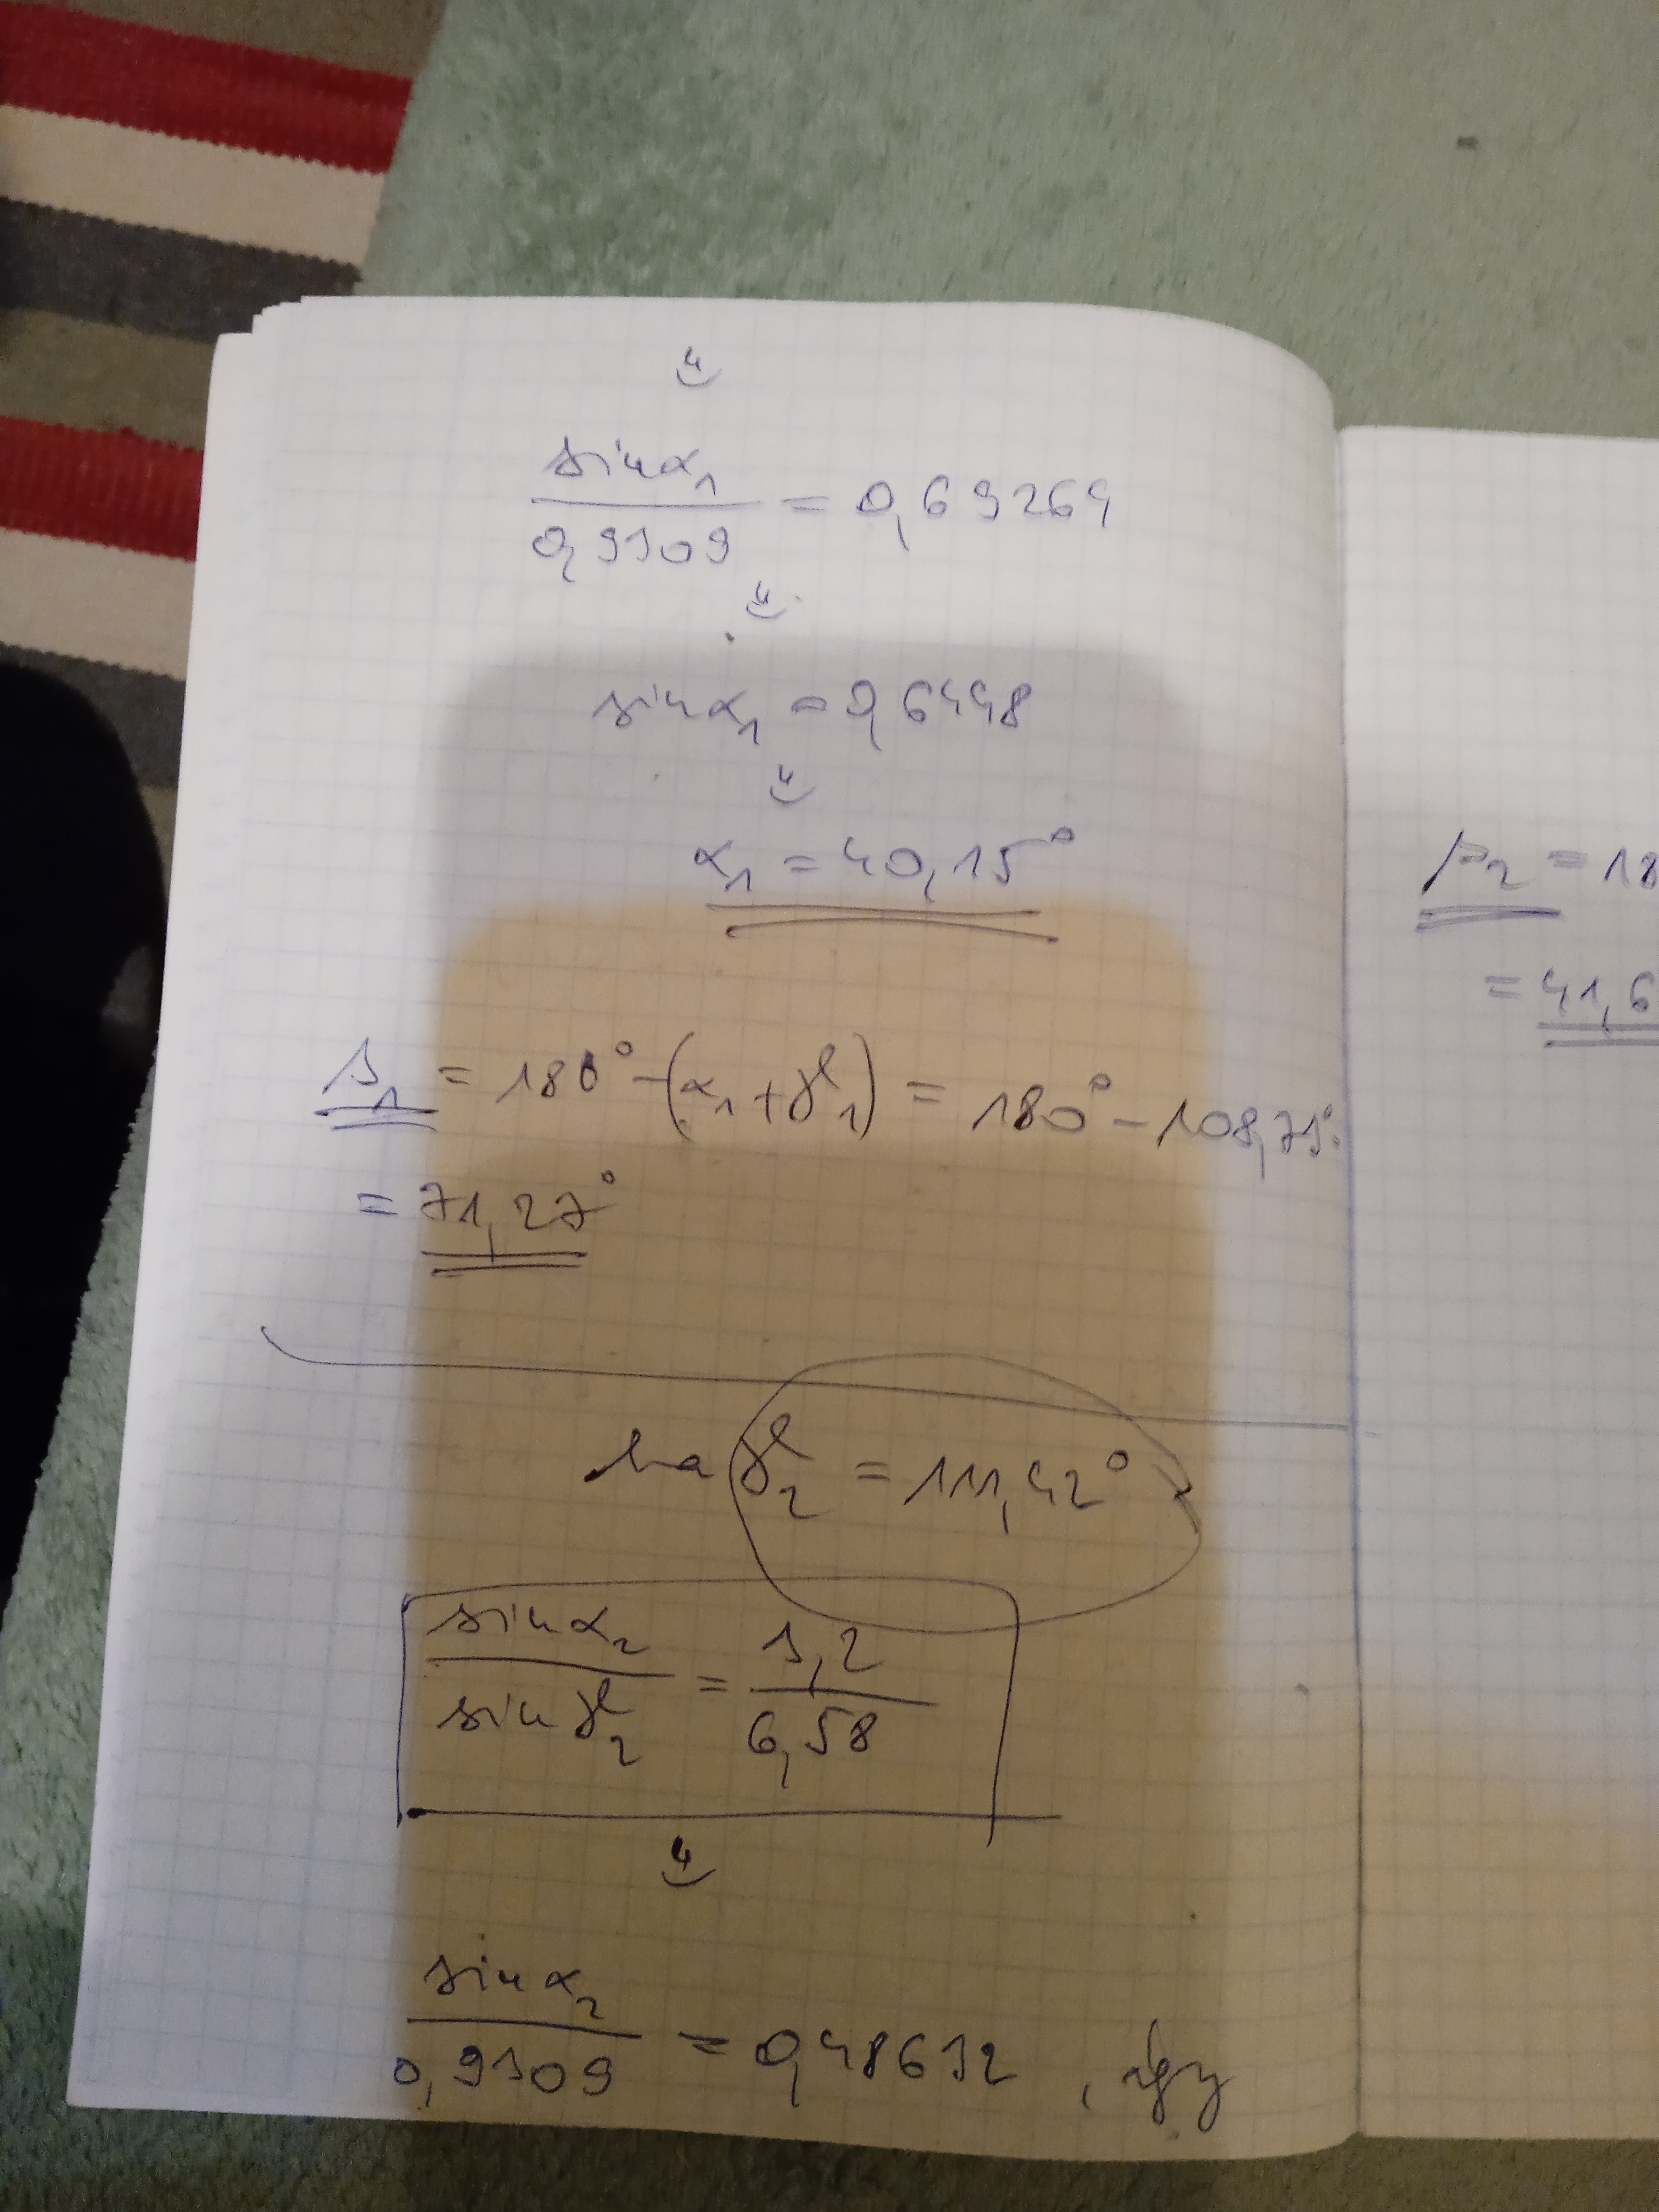 ⇓
sin α₁
——— = 0,69264
0,9309
⇓
sin α₁ = 0,6448
⇓
α₁ = 40,15°
β₁ = 180° − (α₁ + γ₁) = 180° − 108,73°
= 71,27°
ha γ₂ = 111,42°
sin α₂ / sin γ₂ = 3,2 / 6,58
⇓
sin α₂ / 0,9309 = 0,48632, így
β₂ = 18
= 41,6